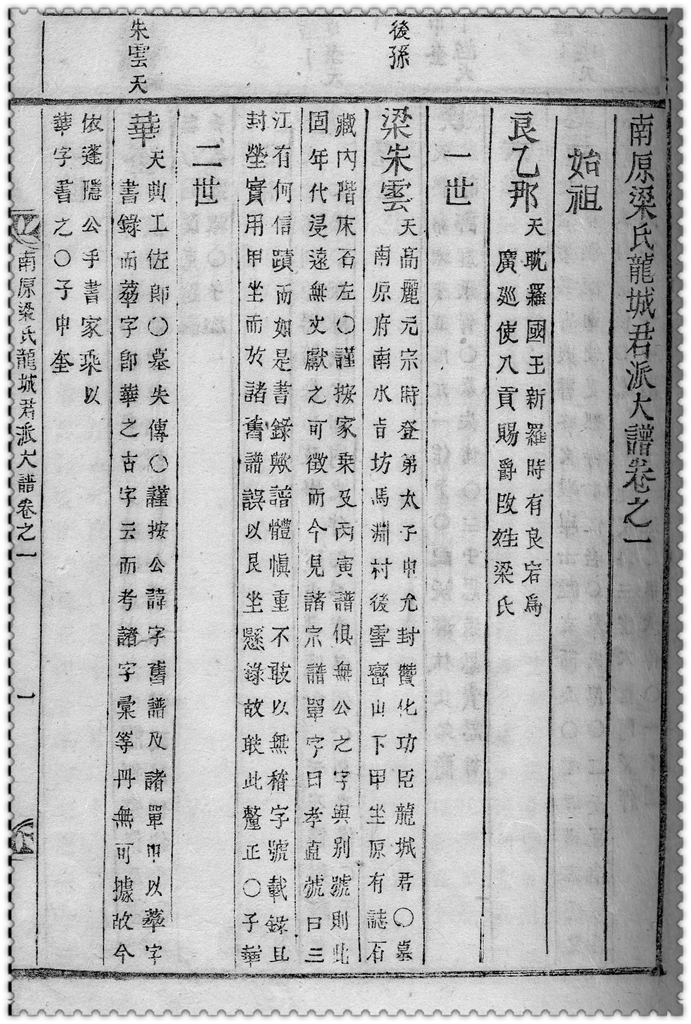 南原梁氏龍城君派大譜卷之一
始祖
良乙那
天耽羅國王新羅時有良宕爲
廣廵使入貢賜爵改姓梁氏
後孫
一世
梁朱雲
天高麗元宗時登第太子中允封贊化功臣龍城君〇墓
南原府南水旨坊馬淵村後雪密山下甲坐原有誌石
藏內階床石左〇謹按家乘及丙寅譜俱無公之字與別號則此
固年代浸遠無文獻之可徵而今見諸宗譜單字曰孝直號曰三
江有何信蹟而如是書錄歟譜體愼重不敢以無稽字號載錄且
封塋實用甲坐而於諸舊譜誤以艮坐懸錄故敢此釐正〇子華
朱雲天
二世
華
天典工佐郎〇墓失傳〇謹按公諱字舊譜及諸單中以蕐字
書錄而蕐字卽華之古字云而考諸字彙等冊無可據故今
依蓬隱公手書家乘以
華字書之〇子申奎
南原梁氏龍城君派大譜卷之一
一